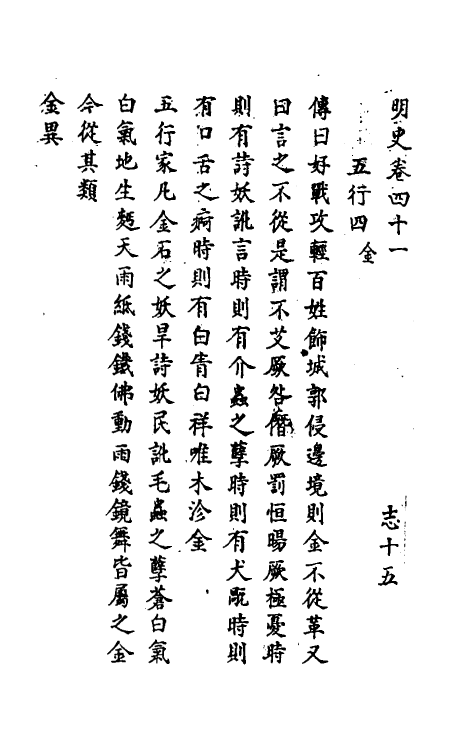 明史卷四十一　志十五
五行四　金
傳曰好戰攻輕百姓飾城郭侵邊境則金不從革又
曰言之不從是謂不艾厥咎僭厥罰恒暘厥極憂時
則有詩妖訛言時則有介蟲之孽時則有犬𤞤時則
有口舌之痾時則有白眚白祥唯木沴金
五行家凡金石之妖旱詩妖民訛毛蟲之孽蒼白氣
白氣地生麪天雨紙錢鐵佛動雨錢鏡舞皆屬之金
今從其類
金異